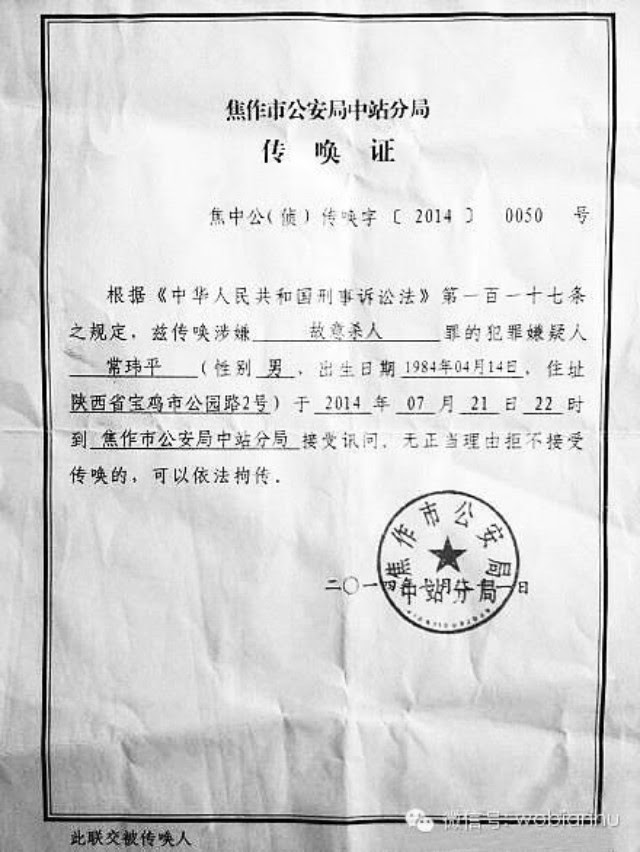 焦作市公安局中站分局
传唤证
焦中公(侦)传唤字〔2014〕 0050 号
根据《中华人民共和国刑事诉讼法》第一百一十七条
之规定，兹传唤涉嫌 故意杀人 罪的犯罪嫌疑人
常玮平 (性别 男，出生日期 1984年04月14日，住址
陕西省宝鸡市公园路2号) 于 2014 年 07 月 21 日 22 时
到 焦作市公安局中站分局 接受讯问．无正当理由拒不接受
传唤的，可以依法拘传．
焦作市公安局
中站分局
二〇一四年七月二十一日
此联交被传唤人
微信号: wobianhu